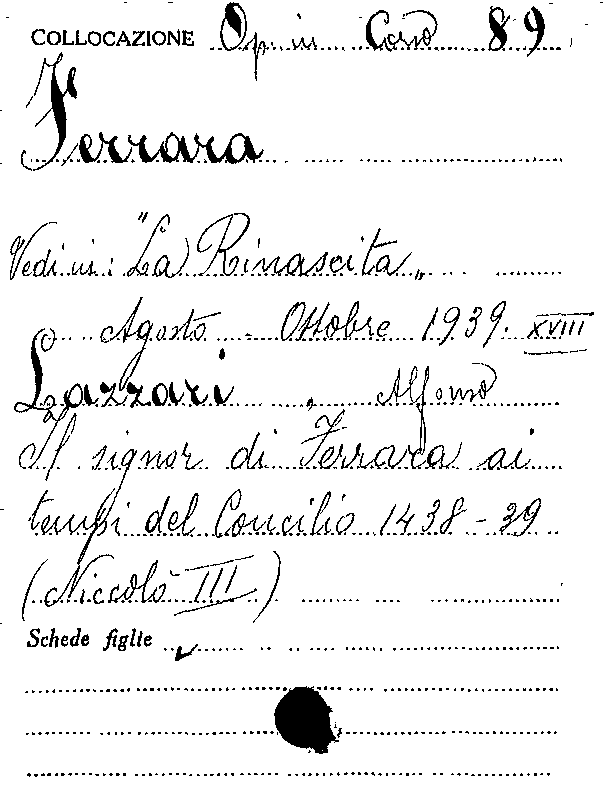 COLLOCAZIONE Op. in Corso 89
Ferrara
Vedi in: "La Rinascita„
Agosto - Ottobre 1939. XVIII
Lazzari, Alfonso
Il signor di Ferrara ai
tempi del Concilio 1438-39
(Niccolò III)
Schede figlie